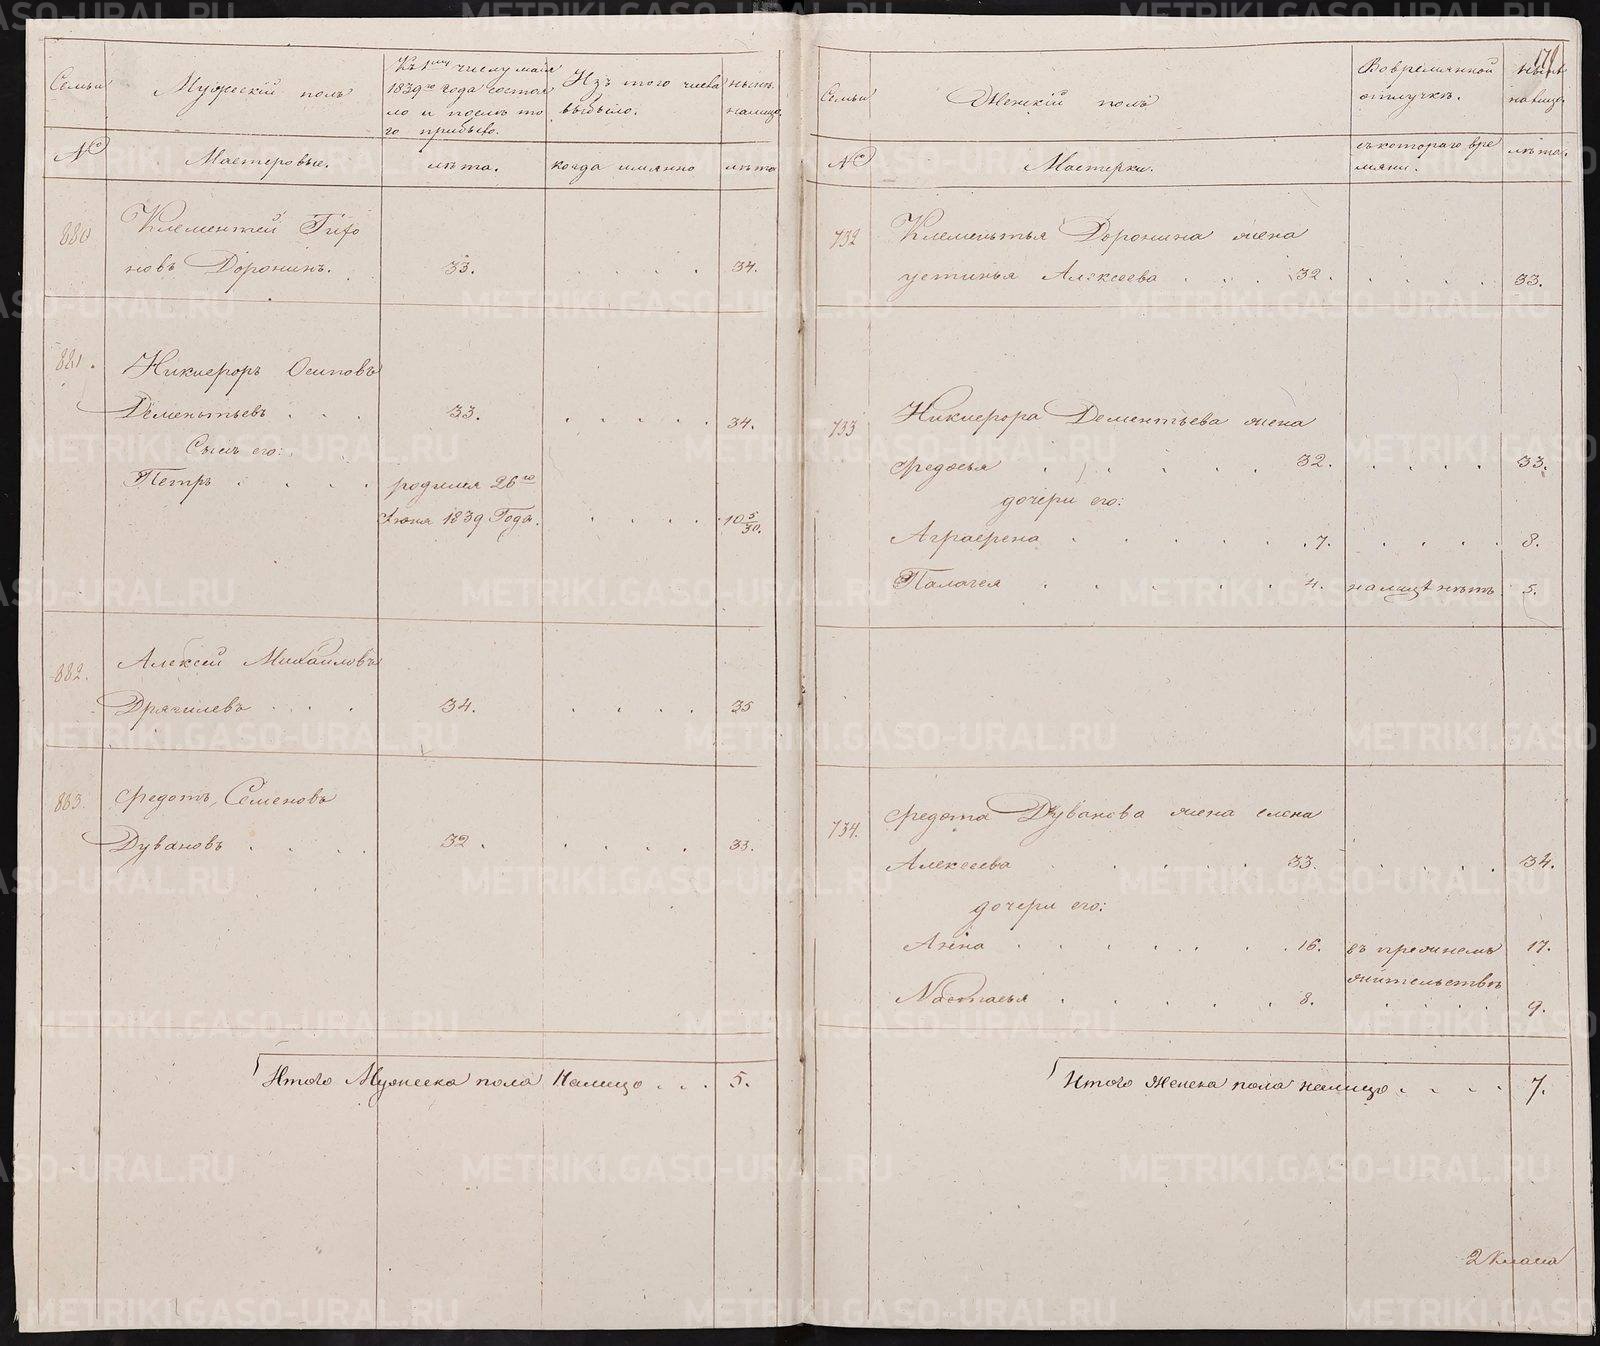 Семьи
Мужескій полъ
Къ 1му числу маія
1839го года состоя
ло и послѣ то
го прибыло.
Изъ того числа
выбыло.
нынѣ
налицо.
№
Мастеровые.
лѣта.
когда имянно
лѣта
880
Клементей Trifo
новъ Доронинъ.
33.
34.
881.
Никифоръ Осиповъ
Дементьевъ
33.
34.
Сынъ его:
Петръ
родился 26го
Іюня 1839 Года.
10 5/30.
882.
Алексей Михайловъ
Дрягилевъ
34.
35
883.
Федотъ Семеновъ
Дувановъ
32.
33.
Итого Мужеска пола Налицо
5.
Семьи
Женскій полъ
Вовремянной
отлучкѣ.
нынѣ
налицо.
№
Мастерки.
съ котораго вре
мяни.
лѣта.
732
Клементья Доронина жена
устинья Алексеева
32.
33.
733
Никифора Дементьева жена
Федосья
32.
33.
дочери его:
Аграфена
7.
8.
Палагея
4.
налицѣ нѣтъ
5.
734.
Федота Дуванова жена елена
Алексеева
33.
34.
дочери его:
Анна
16.
въ прежнемъ
жительствѣ
17.
Настасья
8.
9.
Итого Женска пола налицо
7.
METRIKI.GASO-URAL.RU